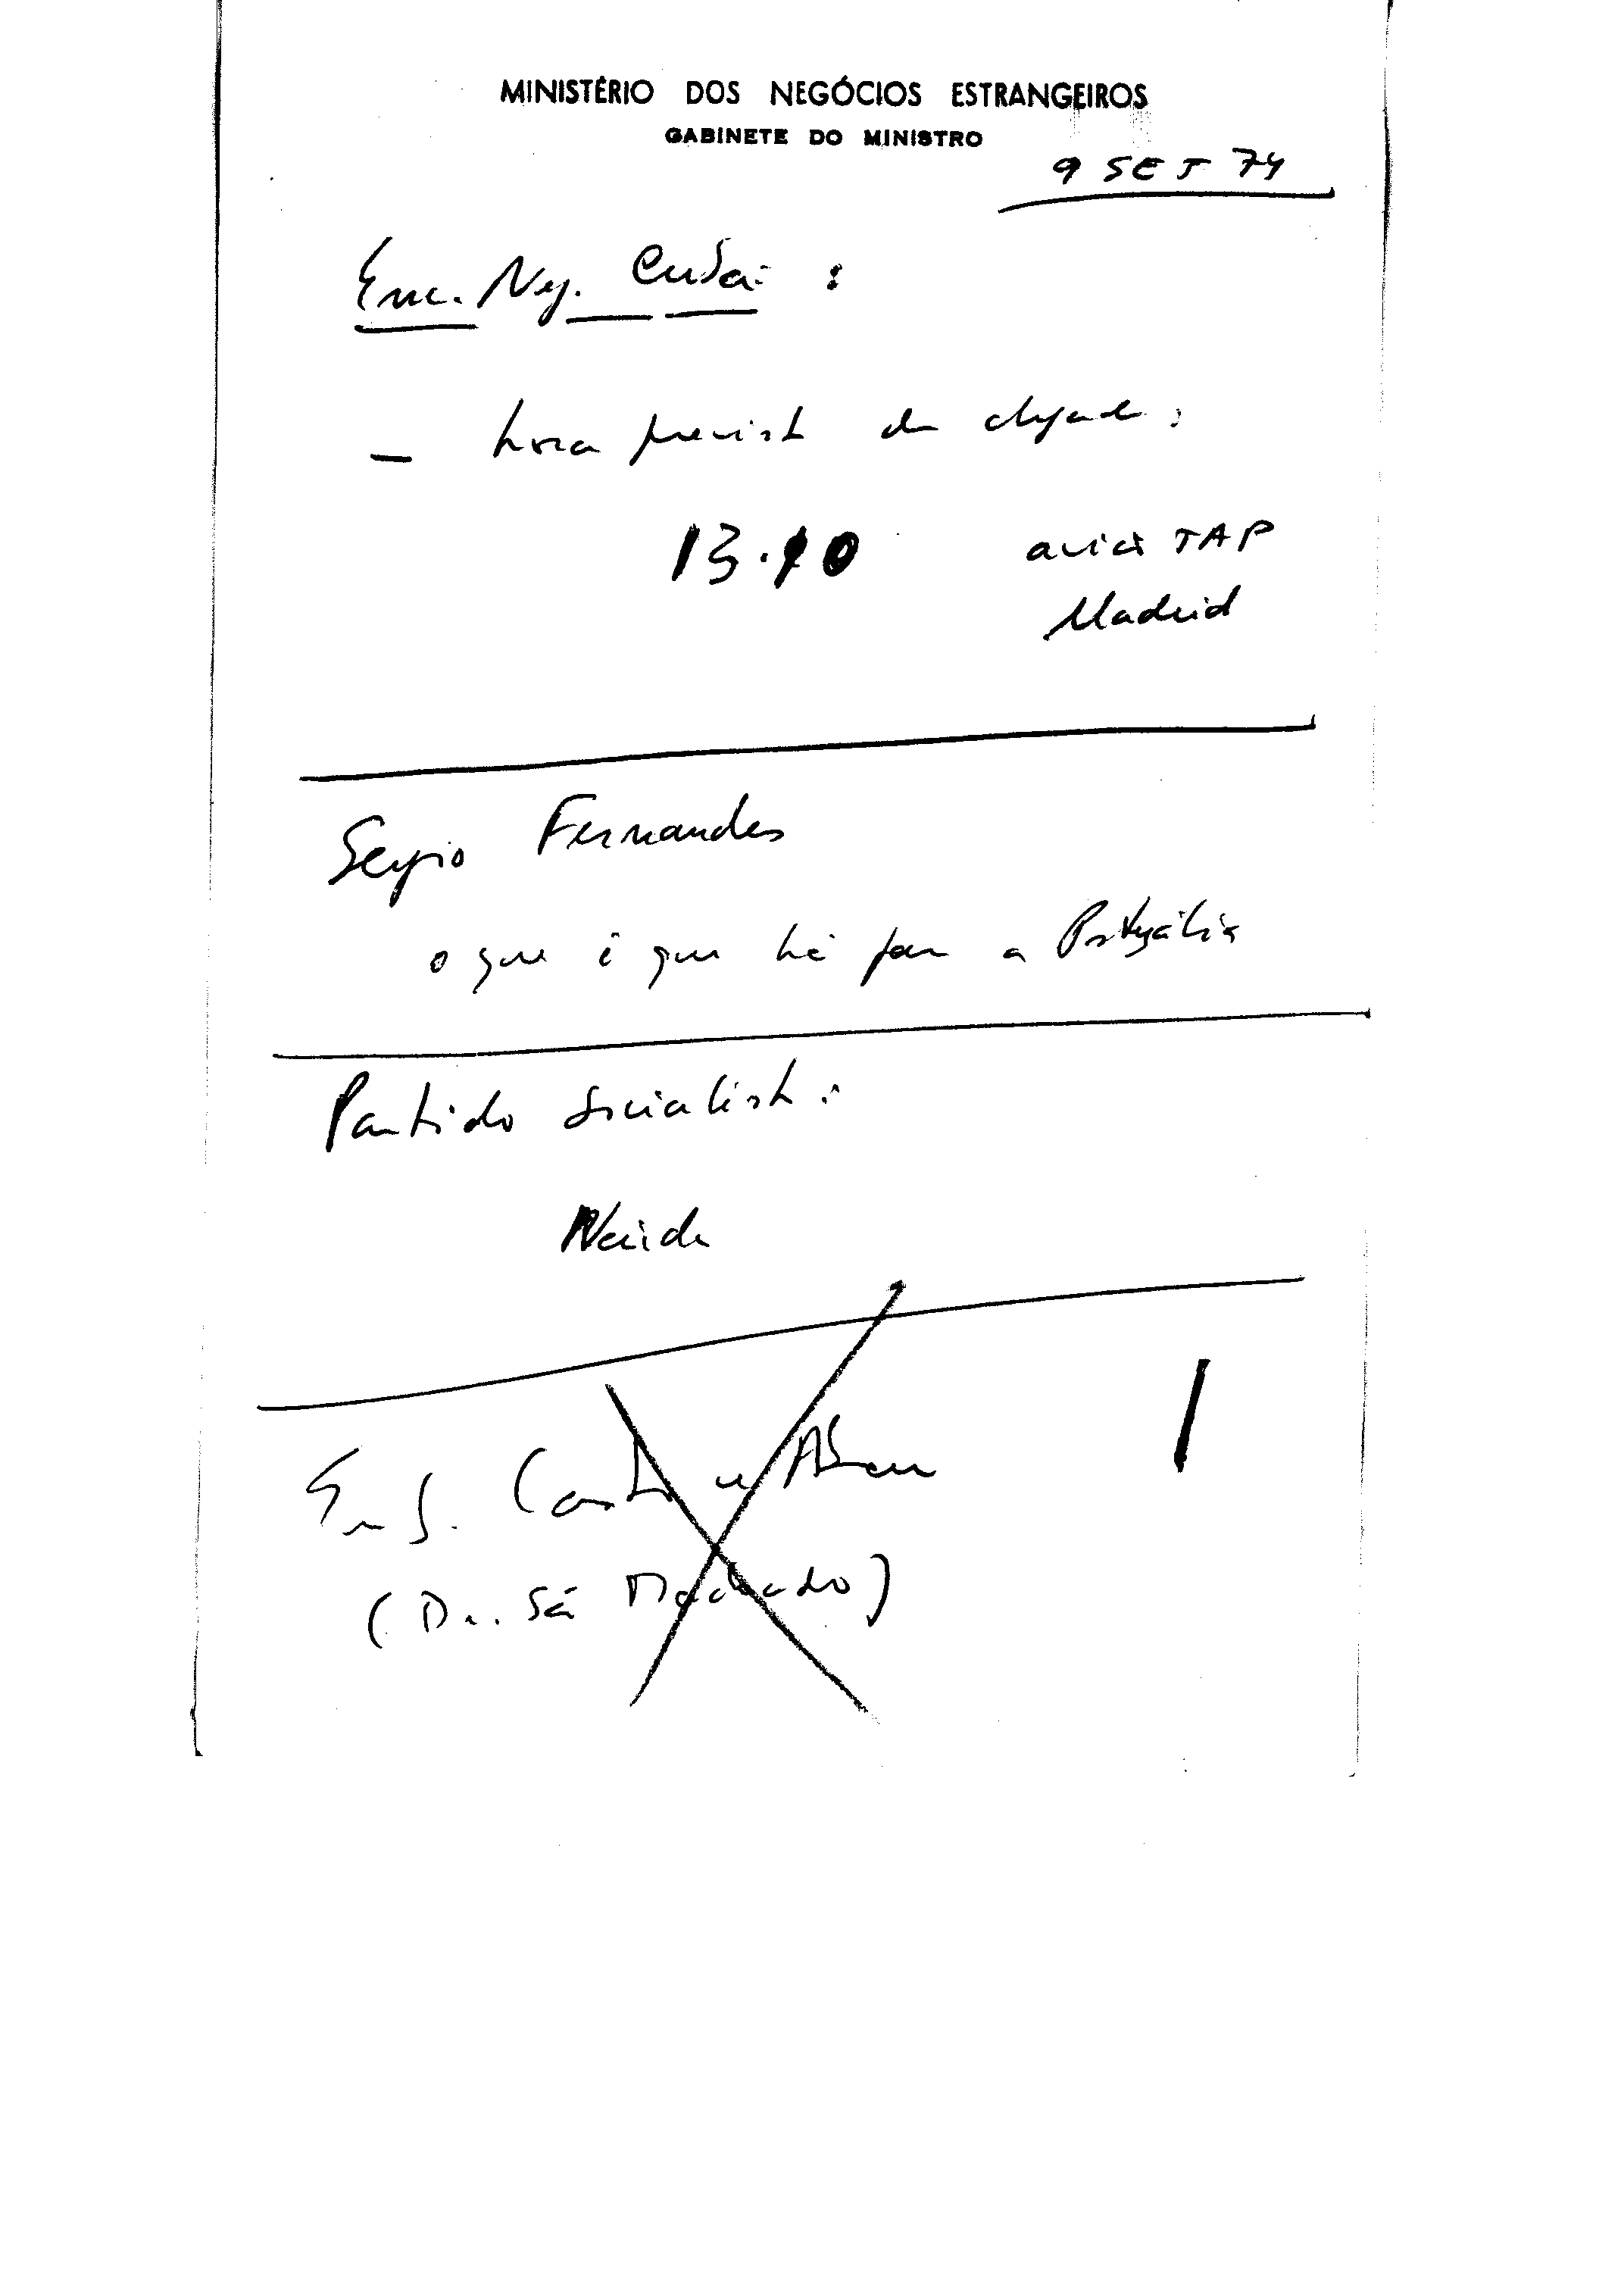 MINISTÉRIO DOS NEGÓCIOS ESTRANGEIROS
GABINETE DO MINISTRO
9 SET 74
Enc. Neg. Cuba :
— hora prevista da chegada :
13.10 avião TAP
Madrid
Sergio Fernandes
o que é que há para a Portugália
Partido Socialista :
Neide
Eng. Castro e Abreu
(Dr. Sá Machado)